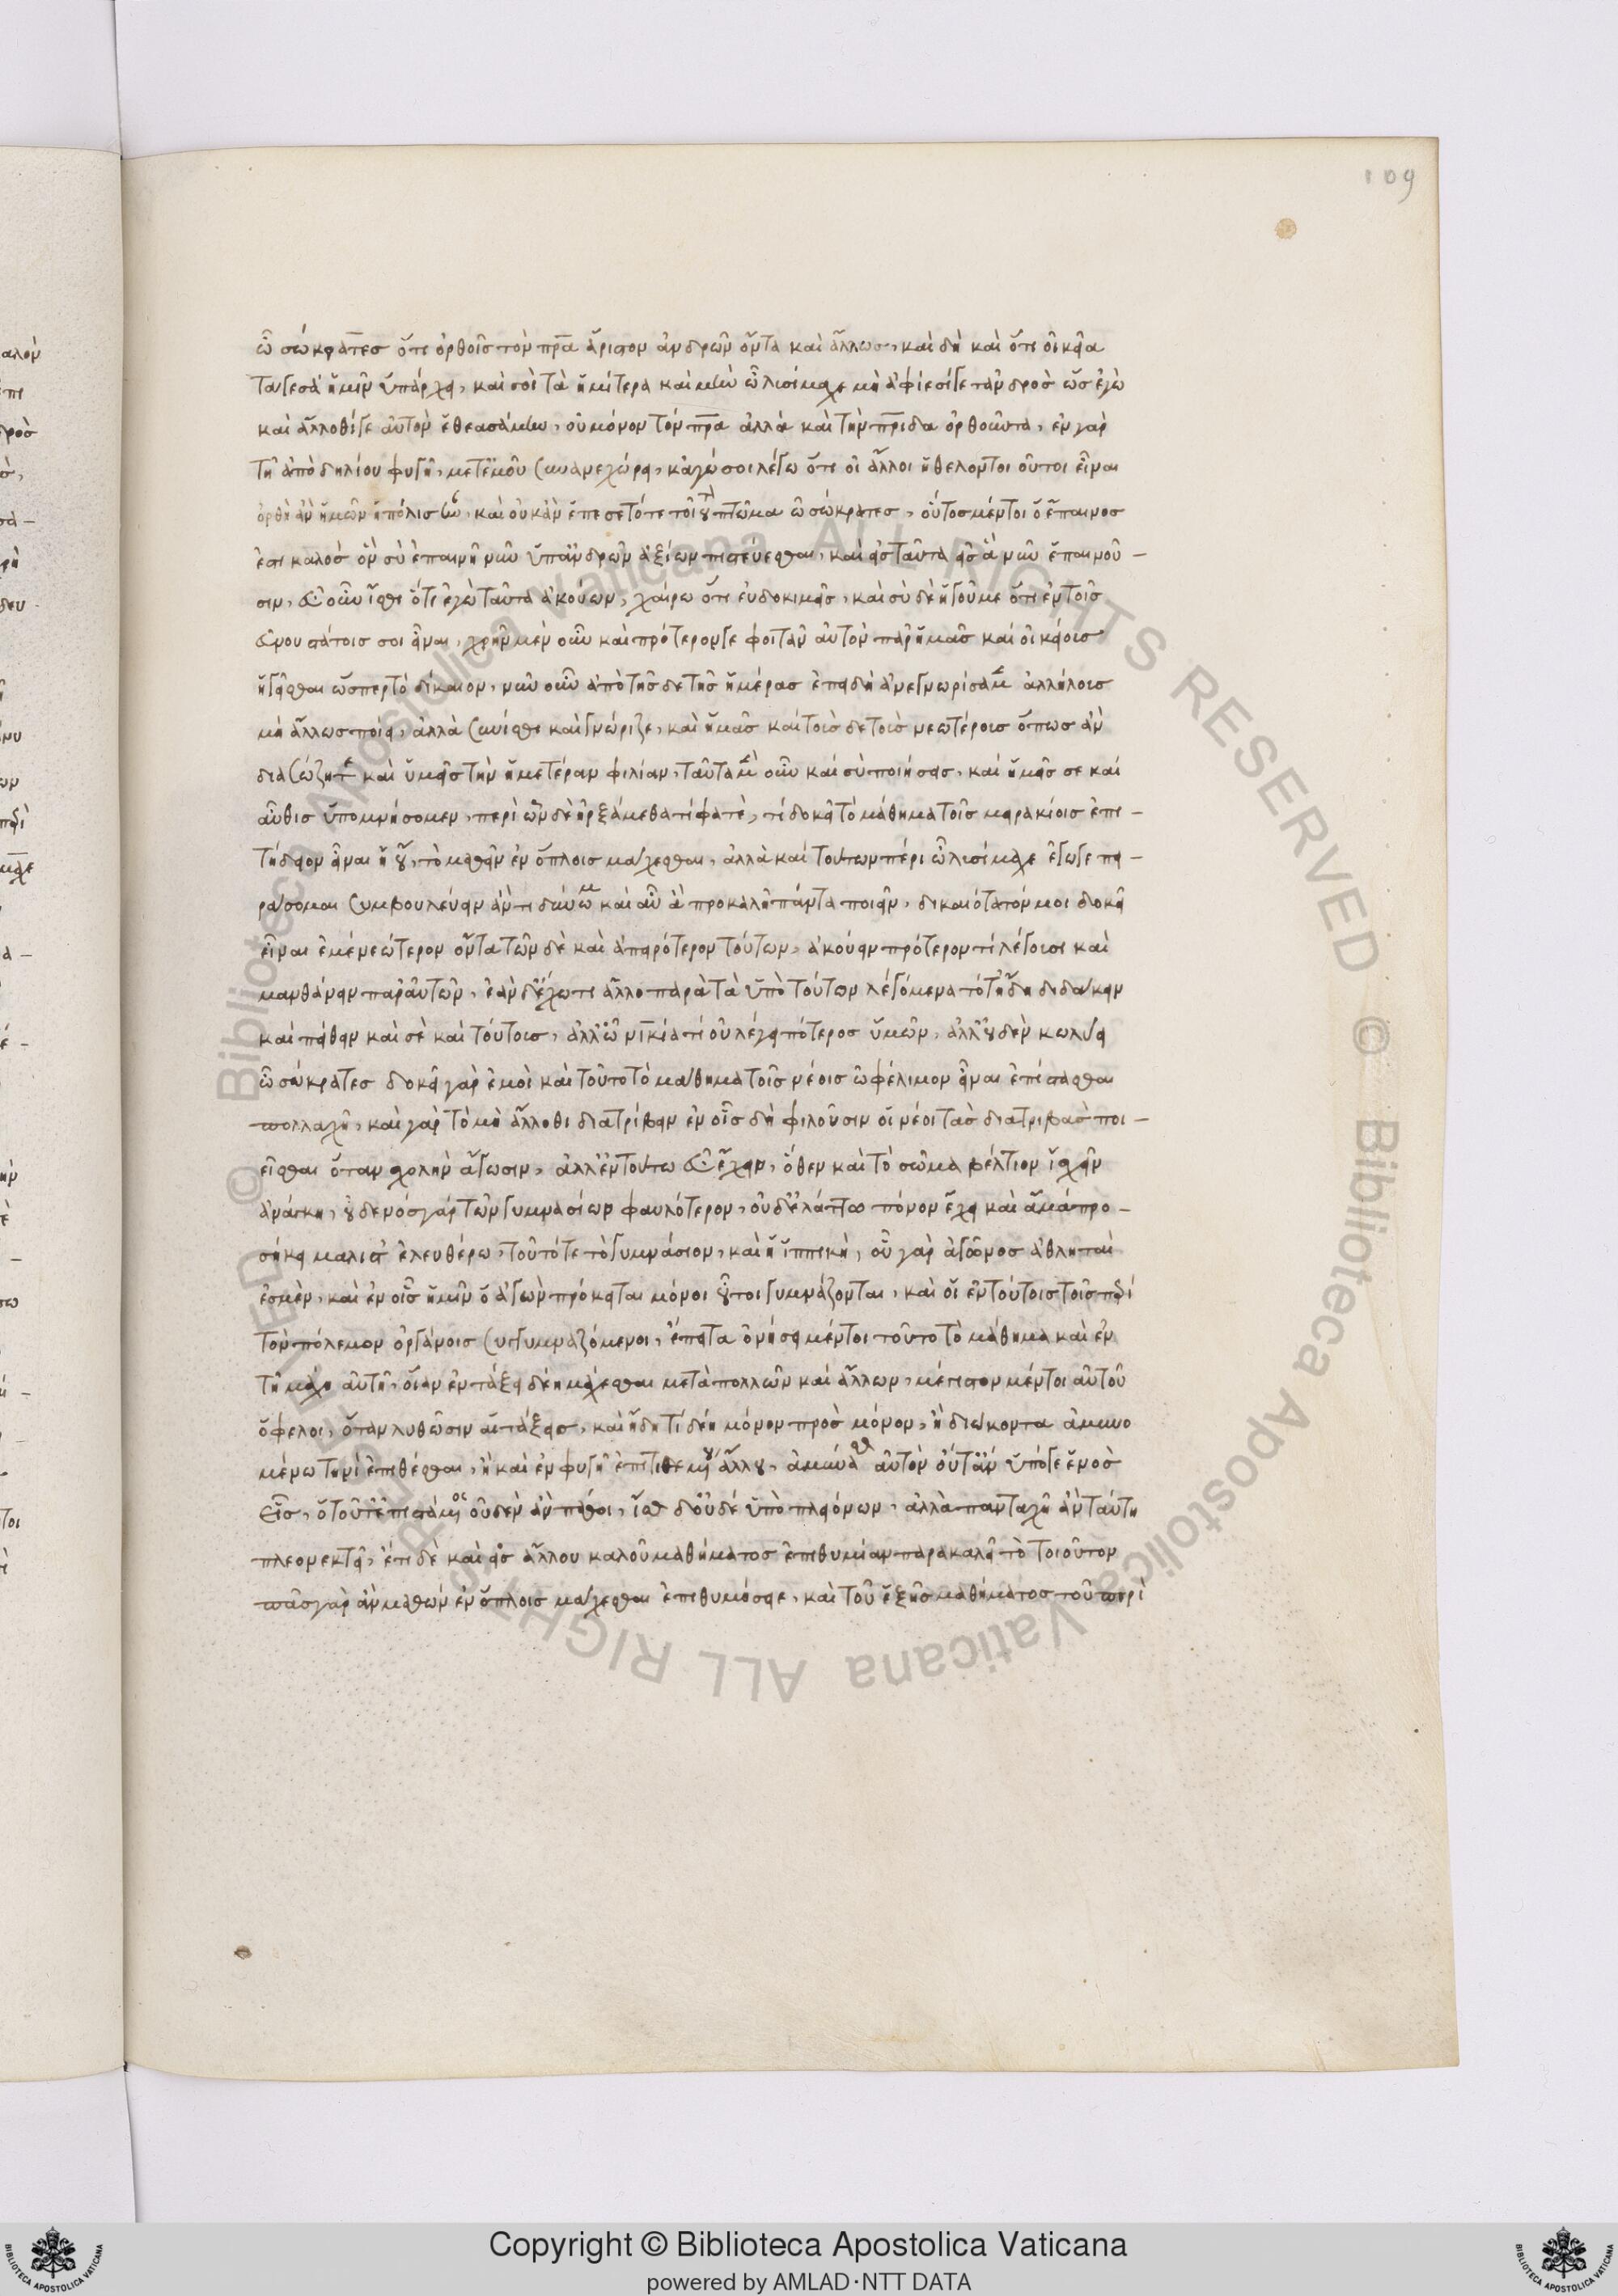 109
ὦ σώκρατες ὅτι ὀρθοῖς τὸν πρα ἄριστον ἀνδρῶν ὄντα καὶ ἄλλως, καὶ δὴ καὶ ὅτι οἰκεῖα
τά γε σὰ ἡμῖν ὑπάρχει, καὶ σοὶ τὰ ἡμέτερα καὶ μὴν ὦ λυσίμαχε μὴ ἀφίεσό γε τἀνδρὸς ὡς ἐγὼ
καὶ ἄλλοθί γε αὐτὸν ἐθεασάμην, οὐ μόνον τὸν πρα ἀλλὰ καὶ τὴν πριδα ὀρθοῦντα, ἐν γὰρ
τῇ ἀπὸ δηλίου φυγῇ, μετ' ἐμοῦ συνανεχώρει, κἀγώ σοι λέγω ὅτι εἰ ἄλλοι ἤθελον τοιοῦτοι εἶναι
ὀρθὴ ἂν ἡμῶν ἡ πόλις ἦν, καὶ οὐκ ἂν ἔπεσε τότε τοιοῦτον πτῶμα ὦ σώκρατες, οὗτος μέντοι ὁ ἔπαινος
ἐστι καλὸς ὃν σὺ ἐπαινῇ νῦν ὑπ' ἀνδρῶν ἀξίων πιστεύεσθαι, καὶ εἰς ταῦτα εἰς ἃ νῦν ἐπαινοῦ-
σιν, εὖ οὖν ἴσθι ὅτι ἐγὼ ταῦτα ἀκούων, χαίρω ὅτι εὐδοκιμεῖς, καὶ σὺ δὲ ἡγοῦ με ὅτι ἐν τοῖς
εὐνουστάτοις σοι εἶναι, χρῆν μὲν οὖν καὶ πρότερόν γε φοιτᾶν αὐτὸν παρ' ἡμᾶς καὶ οἰκείους
ἡγεῖσθαι ὥσπερ τὸ δίκαιον, νῦν οὖν ἀπὸ τῆς δε τῆς ἡμέρας ἐπειδὴ ἀνεγνωρίσαμεν ἀλλήλους
μὴ ἄλλως ποίει, ἀλλὰ σύνισθι καὶ γνώριζε, καὶ ἡμᾶς καὶ τοὺς δε τοὺς νεωτέρους ὅπως ἂν
διασώζητε καὶ ὑμεῖς τὴν ἡμετέραν φιλίαν, ταῦτα μὲν οὖν καὶ σὺ ποιήσεις, καὶ ἡμεῖς σε καὶ
αὖθις ὑπομνήσομεν, περὶ ὧν δὲ ἠρξάμεθα τί φατὲ, τί δοκεῖ τὸ μάθημα τοῖς μειρακίοις ἐπι-
τήδειον εἶναι ἢ οὒ, τὸ μαθεῖν ἐν ὅπλοις μάχεσθαι, ἀλλὰ καὶ τούτων πέρι ὦ λυσίμαχε ἔγωγε πει-
ράσομαι συμβουλεύειν ἄν τι δύνωμαι καὶ αὖ ἃ προκαλῇ πάντα ποιεῖν, δικαιότατόν μοι δοκεῖ
εἶναι ἐμὲ νεώτερον ὄντα τῶν δὲ καὶ ἀπειρότερον τούτων, ἀκούειν πρότερον τί λέγουσι καὶ
μανθάνειν παρ' αὐτῶν, ἐὰν δ' ἔχω τι ἄλλο παρὰ τὰ ὑπὸ τούτων λεγόμενα τότ' ἤδη διδάσκειν
καὶ πείθειν καὶ σὲ καὶ τούτους, ἀλλ' ὦ νικία τί οὐ λέγει πότερος ὑμῶν, ἀλλ' οὐδὲν κωλύει
ὦ σώκρατες δοκεῖ γὰρ ἐμοὶ καὶ τοῦτο τὸ μάθημα τοῖς νέοις ὠφέλιμον εἶναι ἐπίστασθαι
πολλαχῇ, καὶ γὰρ τὸ μὴ ἄλλοθι διατρίβειν ἐν οἷς δὴ φιλοῦσιν οἱ νέοι τὰς διατριβὰς ποι-
εῖσθαι ὅταν σχολὴν ἄγωσιν, ἀλλ' ἐν τούτω εὖ ἔχειν, ὅθεν καὶ τὸ σῶμα βέλτιον ἴσχειν
ἀνάγκη, οὐδενὸς γὰρ τῶν γυμνασίων φαυλότερον, οὐδ' ἐλάττω πόνον ἔχει καὶ ἅμα προ-
σήκει μάλιστ' ἐλευθέρω, τοῦτό τε τὸ γυμνάσιον, καὶ ἡ ἱππικὴ, οὗ γὰρ ἀγῶνος ἀθληταὶ
ἐσμὲν, καὶ ἐν οἷς ἡμῖν ὁ ἀγὼν πρόκειται μόνοι οὗτοι γυμνάζονται, καὶ οἱ ἐν τούτοις τοῖς περὶ
τὸν πόλεμον ὀργάνοις γυμναζόμενοι, ἔπειτα ὀνήσει μέντοι τοῦτο τὸ μάθημα καὶ ἐν
τῇ μάχῃ αὐτῇ, ὅταν ἐν τάξει δέῃ μάχεσθαι μετὰ πολλῶν καὶ ἄλλων, μέγιστον μέντοι αὐτοῦ
ὄφελος, ὅταν λυθῶσιν αἱ τάξεις, καὶ ἤδη τί δέῃ μόνον πρὸς μόνον, ἢ διώκοντα ἀμυνο
μένω τινὶ ἐπιθέσθαι, ἢ καὶ ἐν φυγῇ ἐπιτιθεμένου ἄλλου, ἀμύνασθαι αὐτὸν οὔτ' ἂν ὑπό γε ἑνὸς
εἷς, ὁ τοῦτ' ἐπιστάμενος οὐδὲν ἂν πάθοι, ἴσως δ' οὐδὲ ὑπὸ πλειόνων, ἀλλὰ πανταχῇ ἂν ταύτῃ
πλεονεκτεῖ, ἔτι δὲ καὶ εἰς ἄλλου καλοῦ μαθήματος ἐπιθυμίαν παρακαλεῖ τὸ τοιοῦτον
πᾶς γὰρ ἂν μαθὼν ἐν ὅπλοις μάχεσθαι ἐπιθυμήσειε, καὶ τοῦ ἑξῆς μαθήματος τοῦ περὶ
© Biblioteca Apostolica Vaticana ALL RIGHTS RESERVED
Copyright © Biblioteca Apostolica Vaticana
powered by AMLAD·NTT DATA